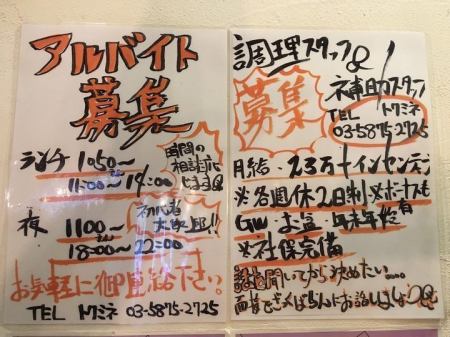 アルバイト
募集
ランチ 1050〜
11:00〜14:00
時間の
相談応
じます
夜 1100〜
18:00〜22:00
初心者
大歓迎!!
お気軽に御連絡下さい?
TEL トクミネ 03-5875-2725
調理スタッフ&
補助スタッフ
募集
TEL トクミネ
03-5875-2725
月給・23万+インセンティブ
※各週休2日制 ※ボーナスも有
GW お盆・年末年始
※社保完備
話を聞いてから決めたい....
面接でざっくばらんにお話しましょう